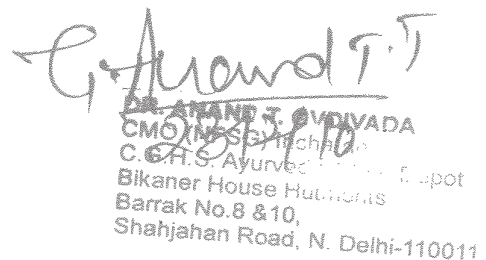 G. Anand T. T
DR. ANAND T.
CMO (NFSG) Incha
23/3/10
C.G.H.S. Ayurve
Bikaner House Hutments
Barrak No.8 &10,
Shahjahan Road, N. Delhi-110011